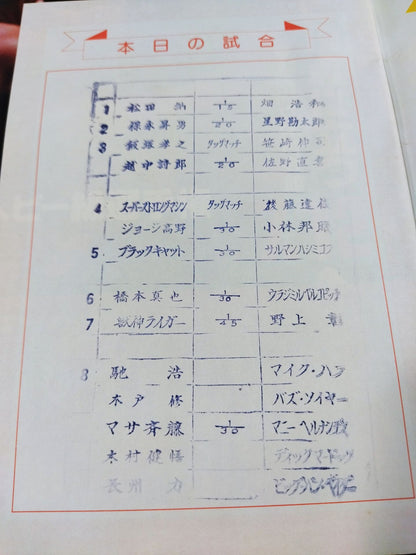 本日の試合
1 松田 納 1/15 畑 浩和
2 保永昇男 1/20 星野勘太郎
3 飯塚孝之 タッグマッチ 笹崎伸司
越中詩郎 1/20 佐野直喜
4 スーパーストロングマシン タッグマッチ 後藤達俊
ジョージ高野 1/30 小林邦昭
5 ブラックキャット 1/30 サルマンハシミコフ
6 橋本真也 1/30 ウラジミルベルコビッチ
7 獣神ライガー 1/45 野上 彰
8 馳 浩 マイク・
木戸 修 バズ・ソイヤー
マサ斉藤 1/30 マニーヘルナンデス
木村健悟 ディックマードック
長州 力